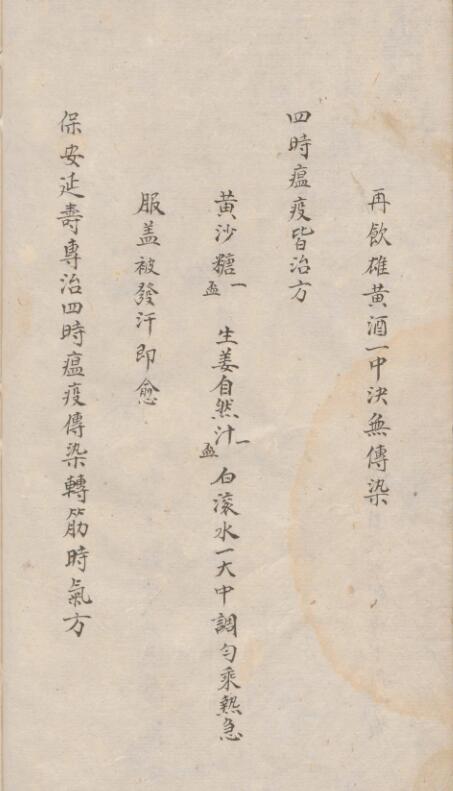 再飲雄黃酒一中決無傳染
四時瘟疫皆治方
黃沙糖一盃 生姜自然汁一盃 白滾水一大中調勻乘熱急
服盖被發汗即愈
保安延壽專治四時瘟疫傳染轉筋時氣方